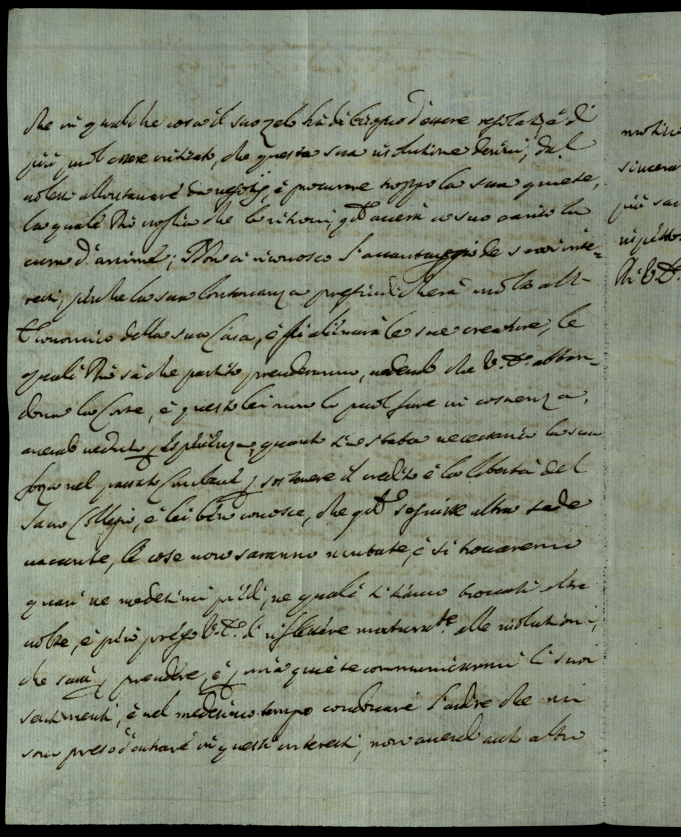 che in qualche cosa il suo zelo hà di bisogno d'essere regolato, è di
più può essere criticato, che questa sua risolutione derivi, dal
volersi allontanare da negotij, è procurare troppo la sua quiete,
la quale Dio voglia che la ritrovi, q.do haverà suo carico la
cura d'anime; Non ci riconosco l'avantaggio de suoi inte-
ressi, perche la sua lontananza pregiudicherà molto all'
Economico della sua Casa, è si alienarà le sue creature, le
quali Dio sà che partito prenderanno, vedendo che V. abban-
dona la Corte, è questo lei non lo può fare in coscienza,
havendo veduto esperienza, quanto sia stata necessaria la sua
nel passato Conclave sostenere il credito è la libertà del
Sacro Collegio, è lei ben conosce, che q.do seguisse altra sede
vacante, le cose non saranno mutate, è si trovaremo
quasi ne medesimi piedi, ne quali si siamo trovati altre
volte, è però prego V. di riflettere matura.te alle risolutioni,
che sarà prendere, è mia quiete communicarmi li suoi
sentimenti, è nel medesimo tempo condonare l'ardire che mi
sono preso d'entrare in questi interessi, non havendo altro
motivo
sincera
più
rispetto
Di V.